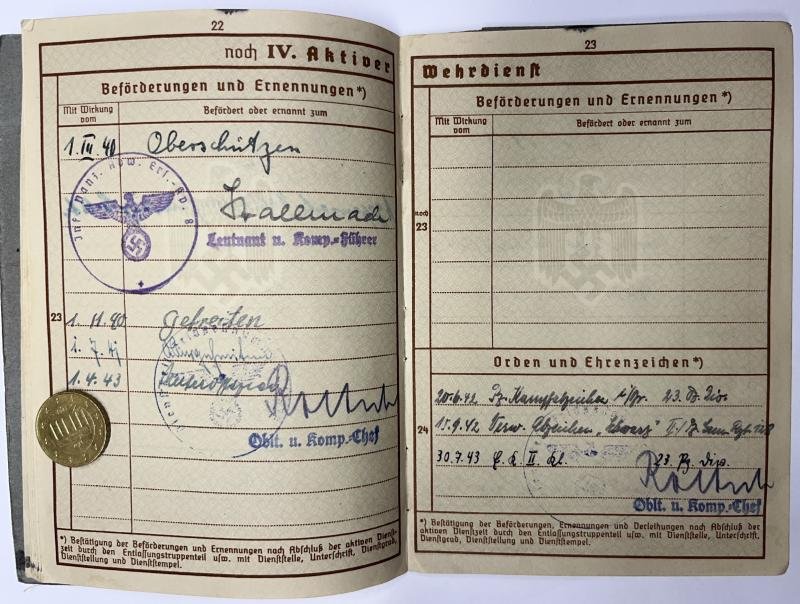 22
noch IV. Aktiver
Beförderungen und Ernennungen*)
Mit Wirkung vom
Befördert oder ernannt zum
1. III. 40 Oberschützen
Inf. Panz. Abw. Ers.
8
Leutnant u. Komp.-Führer
23
1. 11. 40 Gefreiten
1. 4. 43 Unteroffizier
Oblt. u. Komp.-Chef
*) Bestätigung der Beförderungen und Ernennungen nach Abschluß der aktiven Dienst-
zeit durch den Entlassungstruppenteil usw. mit Dienststelle, Unterschrift, Dienstgrad,
Dienststellung und Dienststempel.
23
Wehrdienst
Beförderungen und Ernennungen*)
Mit Wirkung vom
Befördert oder ernannt zum
noch 23
Orden und Ehrenzeichen*)
20.6.42 Pz. Kampfabzeichen 23. Pz. Div.
24
15.9.42 Verw. Abzeichen "Schwarz"
30.7.43 E. K. II. Kl. 23. Pz. Div.
Oblt. u. Komp.-Chef
*) Bestätigung der Beförderungen, Ernennungen und Verleihungen nach Abschluß der
aktiven Dienstzeit durch den Entlassungstruppenteil usw. mit Dienststelle, Unterschrift,
Dienstgrad, Dienststellung und Dienststempel.